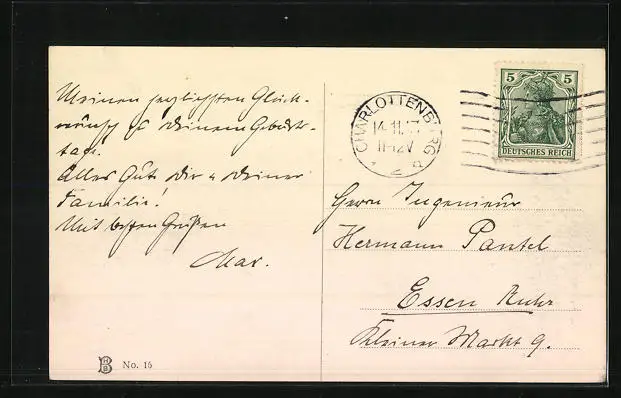 Meinen herzlichsten Glück-
wunsch zu Deinem Geburts-
tage.
Alles Gute Dir u Deiner
Familie!
Mit besten Grüßen
Max.
CHARLOTTENBURG
14.11.
11-12V
5 5
DEUTSCHES REICH
Herrn Ingenieur
Hermann Pantel
Essen Ruhr
Kleiner Markt 9.
No. 16